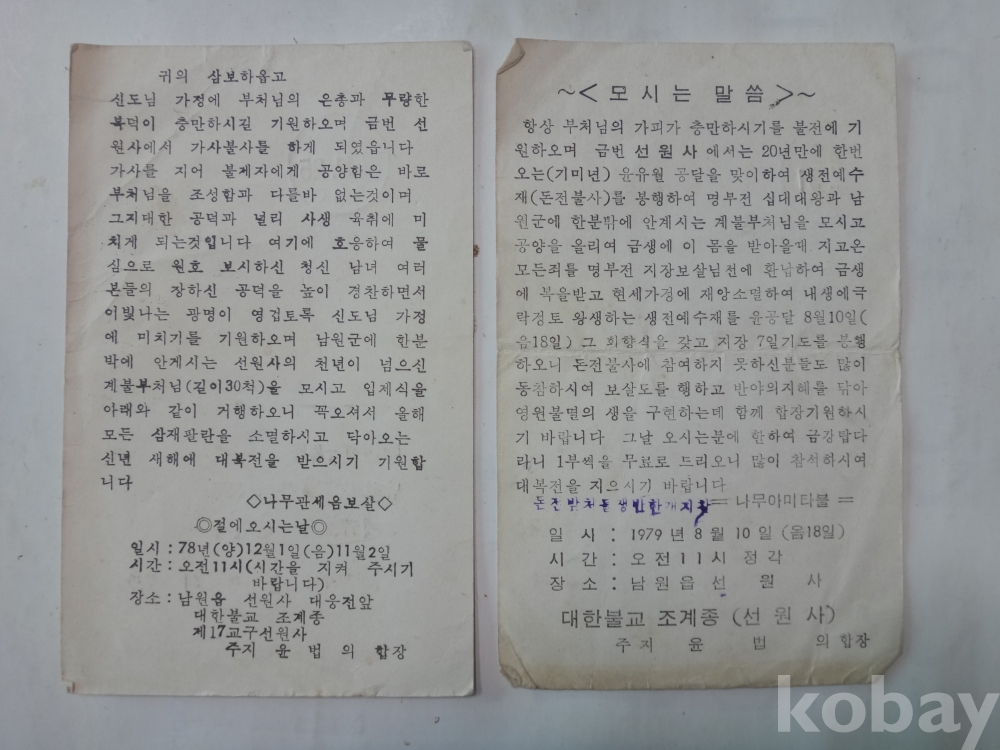 귀의 삼보하옵고
신도님 가정에 부처님의 은총과 무량한
복덕이 충만하시길 기원하오며 금번 선
원사에서 가사불사를 하게 되였읍니다
가사를 지어 불제자에게 공양힘은 바로
부처님을 조성함과 다를바 없는것이며
그지대한 공덕과 널리 사생 육취에 미
치게 되는것입니다 여기에 호응하여 물
심으로 원호 보시하신 청신 남녀 여러
분들의 장하신 공덕을 높이 경찬하면서
이빛나는 광명이 영겁토록 신도님 가정
에 미치기를 기원하오며 남원군에 한분
밖에 안계시는 선원사의 천년이 넘으신
계불부처님(길이30척)을 모시고 입제식을
아래와 같이 거행하오니 꼭오셔서 올해
모든 삼재팔란을 소멸하시고 닥아오는
신년 새해에 대복전을 받으시기 기원합
니다
◇나무관세음보살◇
◎절에오시는날◎
일시:78년(양)12월1일(음)11월2일
시간:오전11시(시간을 지켜 주시기
바랍니다)
장소:남원읍 선원사 대웅전앞
대한불교 조계종
제17교구선원사
주지 윤 법 의 합장
~< 모시는 말씀 >~
항상 부처님의 가피가 충만하시기를 불전에 기
원하오며 금번 선원사에서는 20년만에 한번
오는(기미년) 윤유월 공달을 맞이하여 생전예수
재(돈전불사)를 봉행하여 명부전 십대대왕과 남
원군에 한분밖에 안계시는 계불부처님을 모시고
공양을 올리여 금생에 이 몸을 받아올때 지고온
모든죄를 명부전 지장보살님전에 환납하여 금생
에 복을받고 현세가정에 재앙소멸하여 내생에극
락정토 왕생하는 생전예수재를 윤공달 8월10일(
음18일) 그 회향식을 갖고 지장 7일기도를 봉행
하오니 돈전불사에 참여하지 못하신분들도 많이
동참하시여 보살도를 행하고 반야의지혜를 닦아
영원불멸의 생을 구현하는데 함께 합장기원하시
기 바랍니다 그날 오시는분에 한하여 금강탑다
라니 1부씩을 무료로 드리오니 많이 참석하시여
대복전을 지으시기 바랍니다
= 나무아미타불 =
일 시 : 1979 년 8 월 10 일 (음18일)
시 간 : 오전 11 시 정각
장 소 : 남원읍 선 원 사
대한불교 조계종 (선원사)
주지 윤 법 의합장
kobay